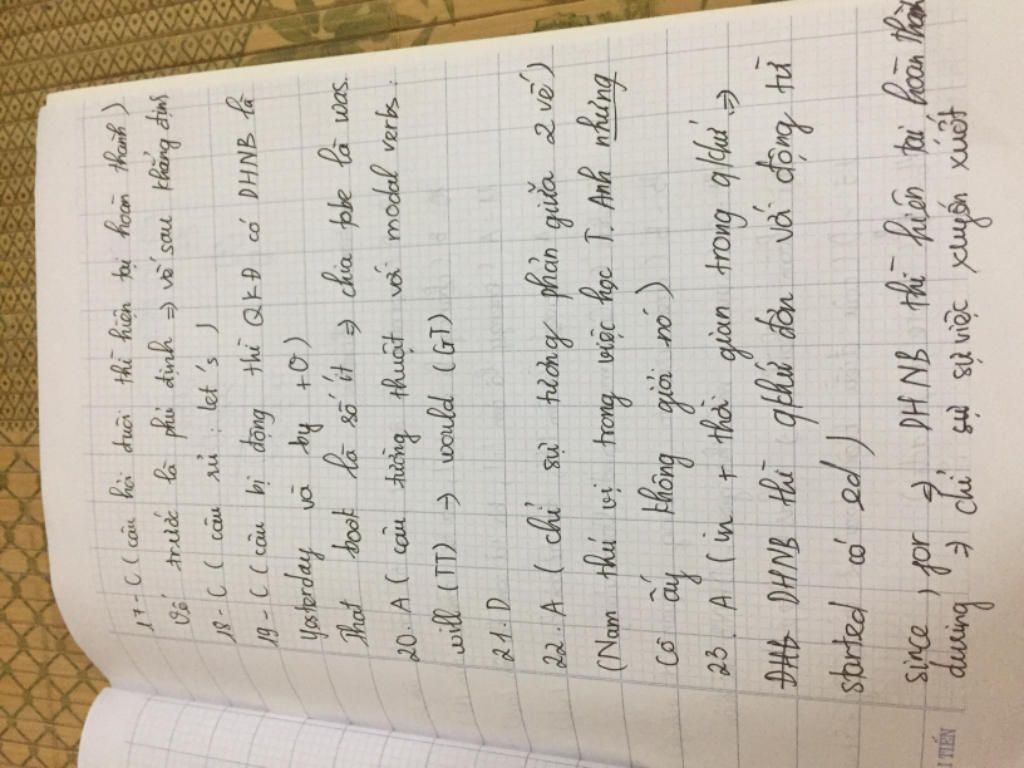 17 - C ( câu hỏi đuôi thì hiện tại hoàn thành )
Vế trước là phủ định => vế sau khẳng định
18 - C ( câu rủ : let's )
19 - C ( câu bị động thì QKĐ có DHNB là
Yesterday và by + O )
That book là số ít => chia tobe là was.
20. A ( câu tường thuật với modal verbs.
will (TT) => would (GT)
21. D
22. A ( chỉ sự tương phản giữa 2 vế )
(Nam thú vị trong việc học T. Anh nhưng
Cô ấy không giỏi nó )
23. A ( in + thời gian trong q/khứ =>
DHB DHNB thì qkhứ đơn với động từ
started có ed )
since, for => DHNB thì hiện tại hoàn thành
during => chỉ sự sự việc xuyên suốt
I TIẾN